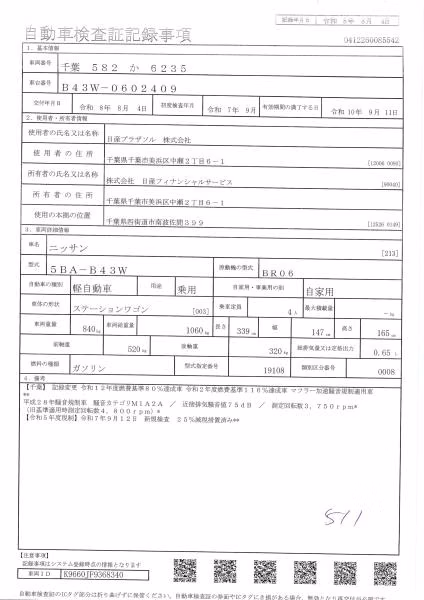 記録年月日 令和 8年 8月 4日
自動車検査証記録事項
0412260085542
1. 基本情報
車両番号 千葉 582 か 6235
車台番号 B43W-0602409
交付年月日 令和 8年 8月 4日 初度検査年月 令和 7年 9月 有効期間の満了する日 令和 10年 9月 11日
2. 使用者・所有者情報
使用者の氏名又は名称 日産プラザソル 株式会社
使用者の住所 千葉県千葉市美浜区中瀬2丁目6-1 [12006 0090]
所有者の氏名又は名称 株式会社 日産フィナンシャルサービス [90040]
所有者の住所 千葉県千葉市美浜区中瀬2丁目6-1
使用の本拠の位置 千葉県四街道市南波佐間399 [12526 0149]
3. 車両詳細情報
車名 ニッサン [213]
型式 5BA-B43W 原動機の型式 BR06
自動車の種別 軽自動車 用途 乗用 自家用・事業用の別 自家用
車体の形状 ステーションワゴン [003] 乗車定員 4人 最大積載量 -kg
車両重量 840kg 車両総重量 1060kg 長さ 339cm 幅 147cm 高さ 165cm
前軸重 520kg 後軸重 320kg 総排気量又は定格出力 0.65 L
燃料の種類 ガソリン 型式指定番号 19108 類別区分番号 0008
4. 備考
【千葉】 記録変更 令和12年度燃費基準80%達成車 令和2年度燃費基準116%達成車 マフラー加速騒音規制適用車
**
平成28年騒音規制車 騒音カテゴリM1A2A / 近接排気騒音値75dB / 測定回転数3,750rpm*
(旧基準適用時測定回転数4,800rpm)*
【令和5年度税制】令和7年9月12日 新規検査 25%減税措置済み**
511
【注意事項】
記録事項はシステム登録時点の情報となります
車両ID K9660JP9368340
自動車検査証のICタグ部分は折り曲げずに保管してください。